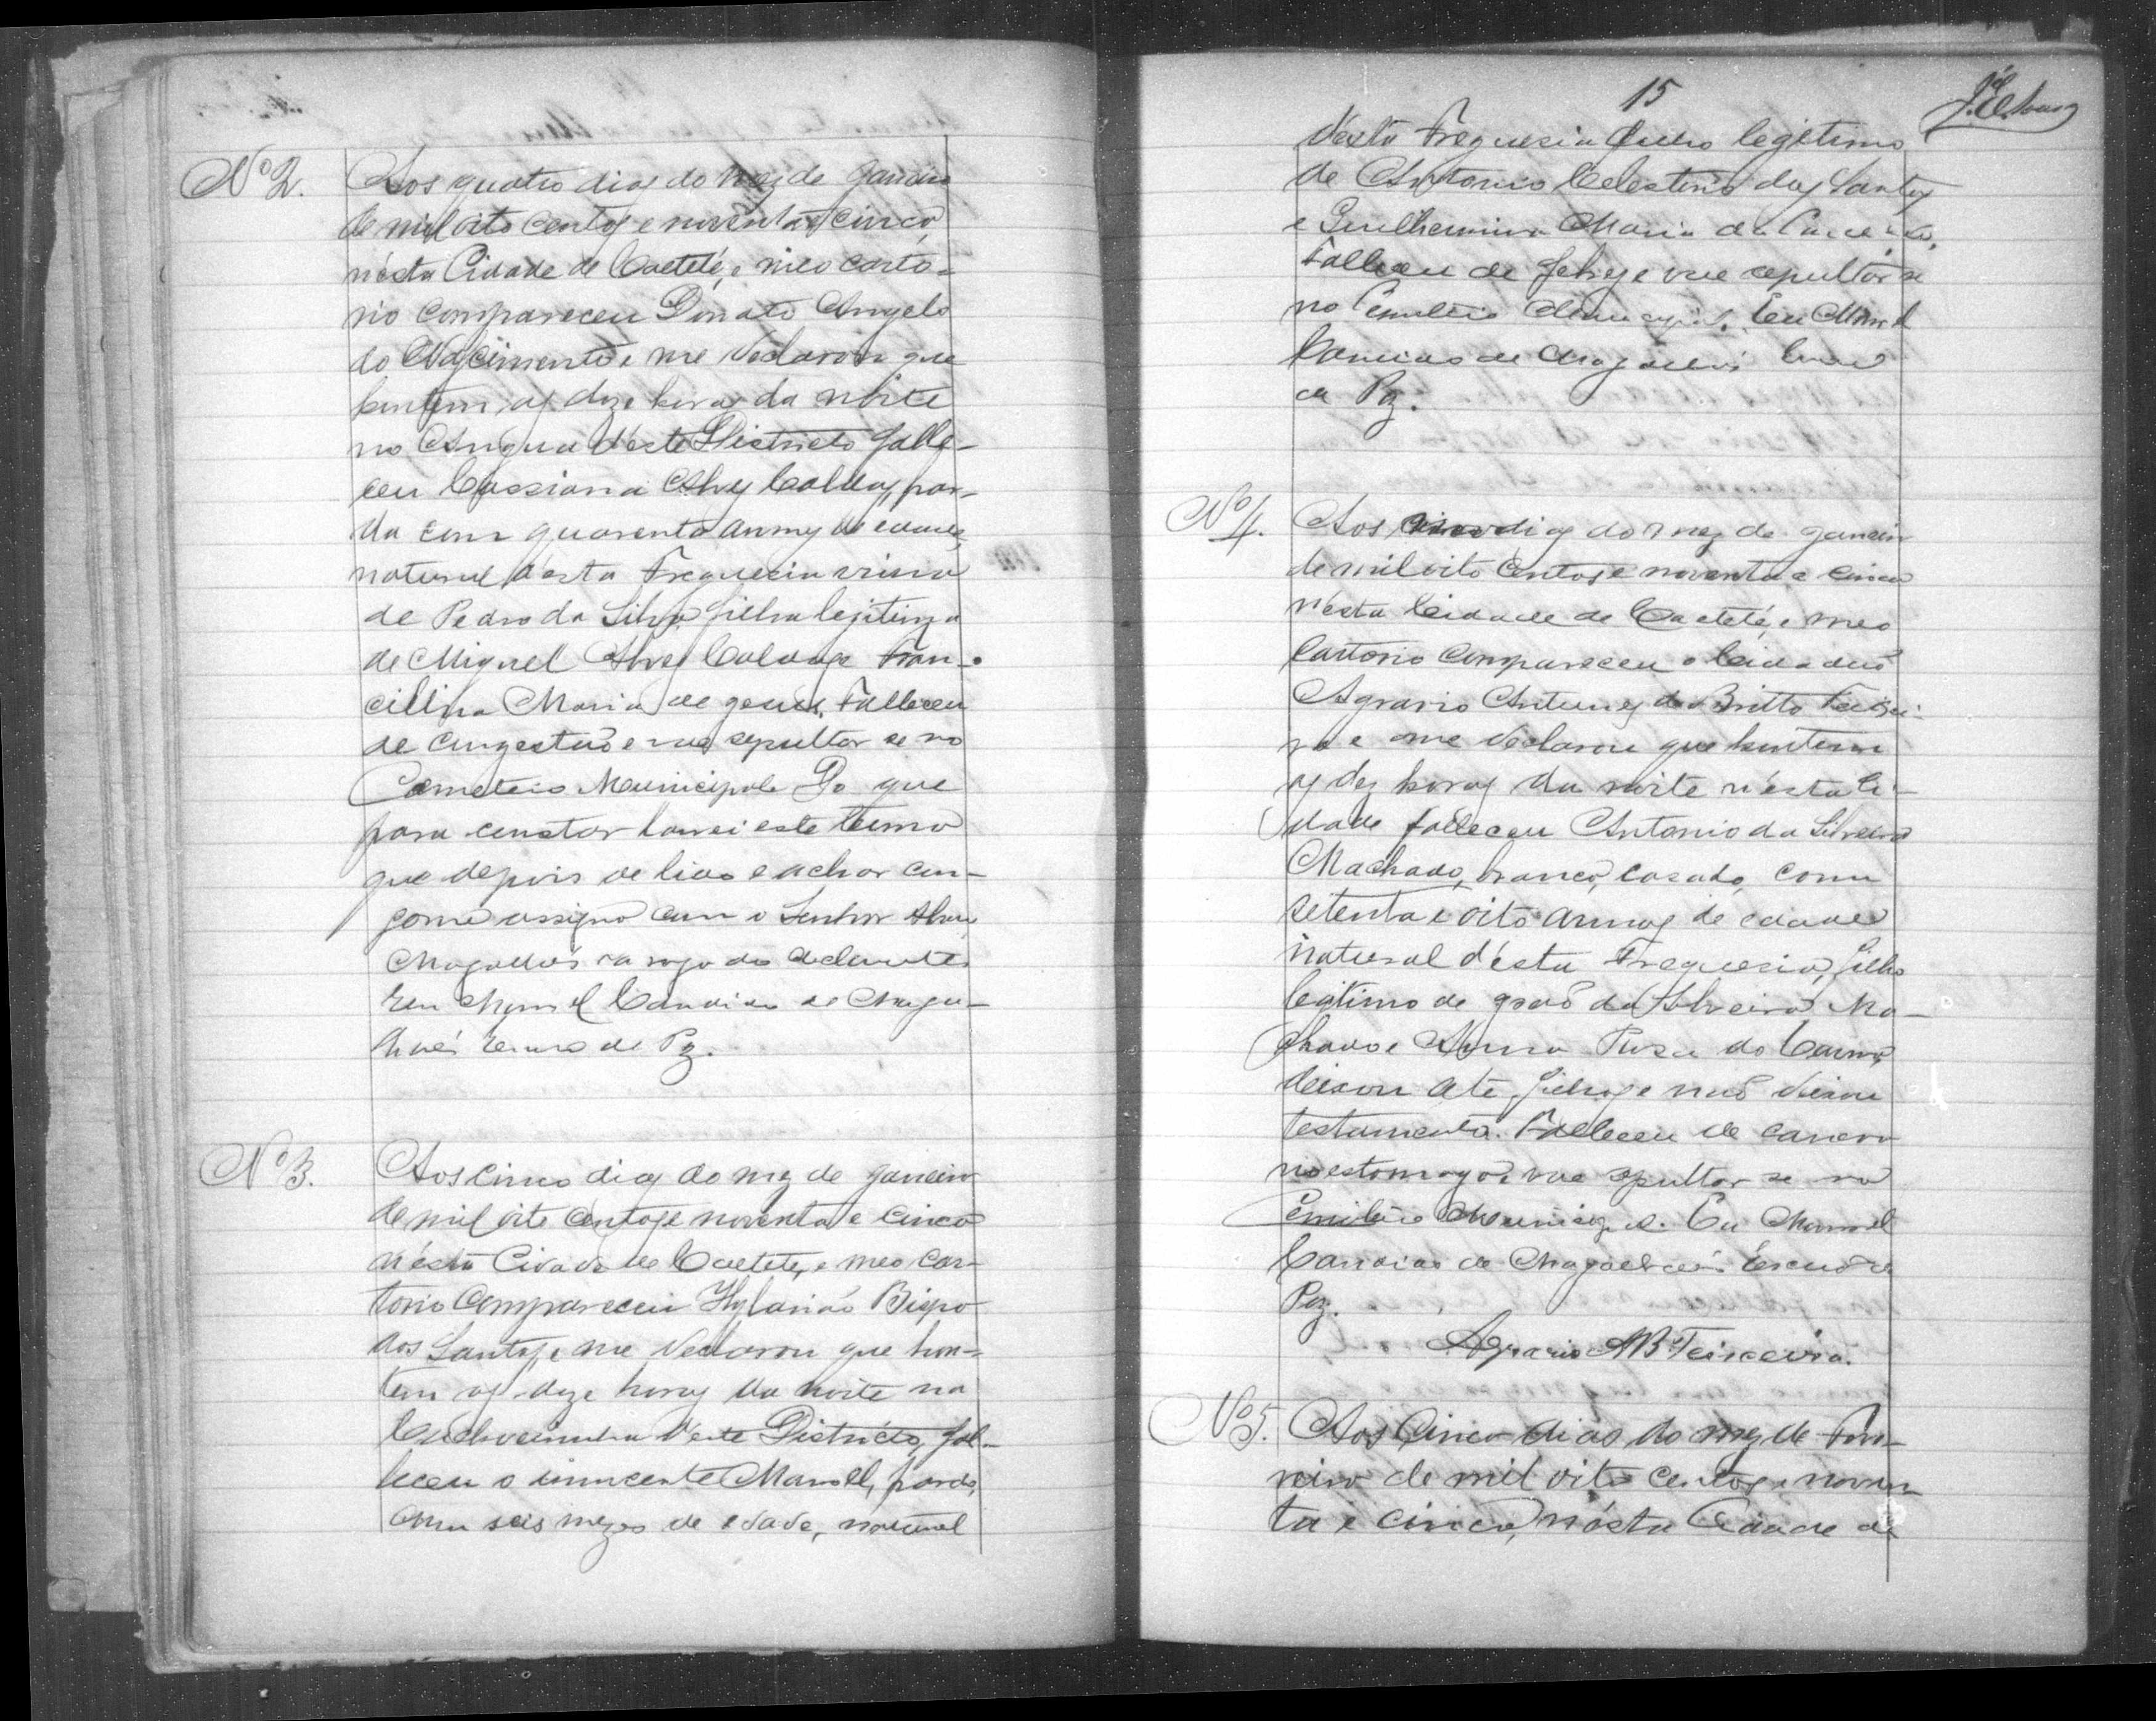 Nº 2.
Aos quatro dias do mez de Janeiro
de mil oito centos e noventa e cinco,
n'ésta Cidade de Caeteté, e meo carto-
rio compareceu Donato Angelo
do Nascimento e me declarou que
hontem, as doze horas da noite
no d'éste Districto falle-
ceu Cassiana Alves Caldas, par-
da com quarenta annos de edade,
natural désta Freguezia viuva
de Pedro da Silva filha legitima
de Miguel Alves Caldas e Fran-
cillina Maria de Jesus. Falleceu
de congestão e vae sepultar se no
Cemeterio Municipal. Do que
para constar lavrei este termo
que depois de lido e achar con-
forme assigno com o Senhor
Magalhães a rogo do declarante.
Eu Manoel Candido de Maga-
lhães Escrivão de Paz.
Nº 3.
Aos cinco dias do mez de Janeiro
de mil oito centos e noventa e cinco
n'ésta Cidade de Caeteté, e meo Car-
torio Compareceu Hylarião Bispo
dos Santos, e me declarou que hon-
tem as doze horas da noite na
Cachoeirinha d'éste Districto, fal-
leceu o innocente Manoel, pardo,
com seis mezes de edade, natural
15
désta Freguesia filho legitimo
de Antonio Celestino dos Santos
e Guilhermina Maria da Conceição,
Falleceu de febre e vae sepultar se
no Cemiterio Municipal. Eu Manoel
Candido de Magalhães Escrivão
de Paz.
Nº 4.
Aos cinco dias do mez de Janeiro
de mil oito centos e noventa e cinco
n'ésta Cidade de Caeteté, e meo
Cartorio Compareceu o Cidadão
Agrario Antunes de Britto Teixei-
ra e me declarou que hontem
as dez horas da noite n'ésta Ci-
dade falleceu Antonio da Silveira
Machado, branco, casado, com
setenta e oito annos de edade
natural d'ésta Freguesia, filho
legitimo de João da Silveira Ma-
chado e Anna Rosa do Carmo,
deixou sete filhos e não deixou
testamento. Falleceu de cancro
no estomago e vae sepultar se no
Cemiterio Municipal. Eu Manoel
Candido de Magalhães Escrivão de
Paz.
Agrario A B Teixeira.
Nº 5.
Aos Cinco dias do mez de Fave-
reiro de mil oito centos e noven-
ta e cinco, n'ésta Cidade de